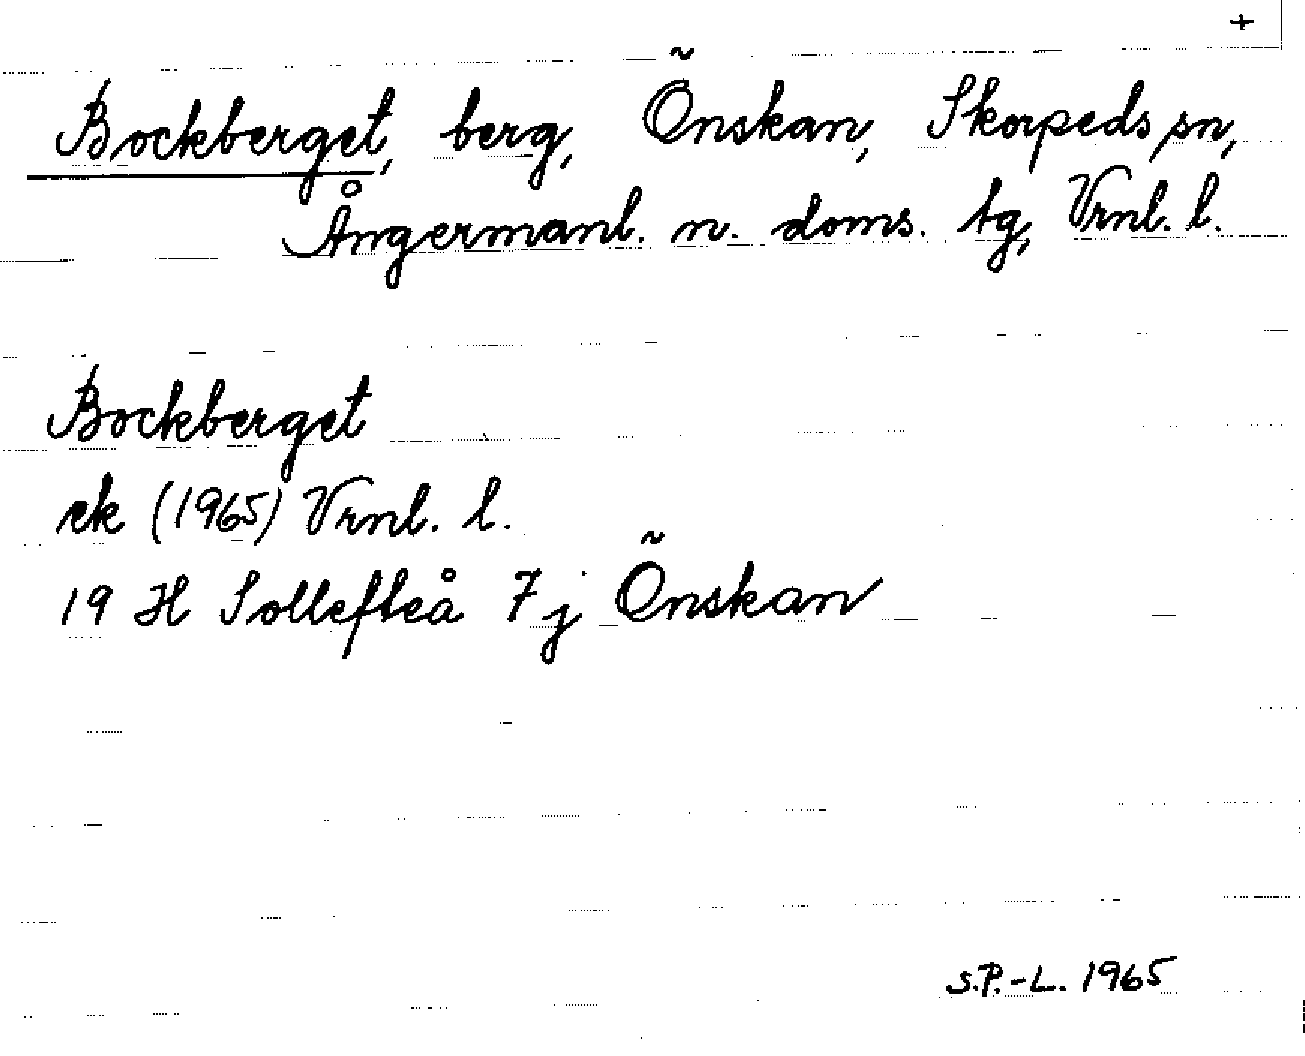 +
Bockberget, berg, Önskan, Skorpeds sn,
Ångermanl. n. doms. tg, Vrnl. l.
Bockberget
ek (1965) Vrnl. l.
19 H Sollefteå 7 j Önskan
S.P.-L. 1965